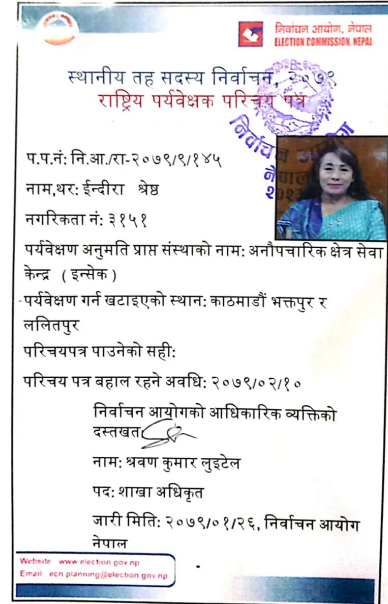 निर्वाचन आयोग, नेपाल
ELECTION COMMISSION, NEPAL
स्थानीय तह सदस्य निर्वाचन, २०७९
राष्ट्रिय पर्यवेक्षक परिचय पत्र
निर्वाचन आयोग
नेपाल
प.प.नं: नि.आ./रा-२०७९/९/१४५
नाम,थर: ईन्दीरा श्रेष्ठ
नगरिकता नं: ३१५१
पर्यवेक्षण अनुमति प्राप्त संस्थाको नाम: अनौपचारिक क्षेत्र सेवा
केन्द्र ( इन्सेक )
पर्यवेक्षण गर्न खटाइएको स्थान: काठमाडौं भक्तपुर र
ललितपुर
परिचयपत्र पाउनेको सही:
परिचय पत्र बहाल रहने अवधि: २०७९/०२/१०
निर्वाचन आयोगको आधिकारिक व्यक्तिको
दस्तखत
नाम: श्रवण कुमार लुइटेल
पद: शाखा अधिकृत
जारी मिति: २०७९/०१/२६, निर्वाचन आयोग
नेपाल
Website: www.election.gov.np
Email: ecn.planning@election.gov.np